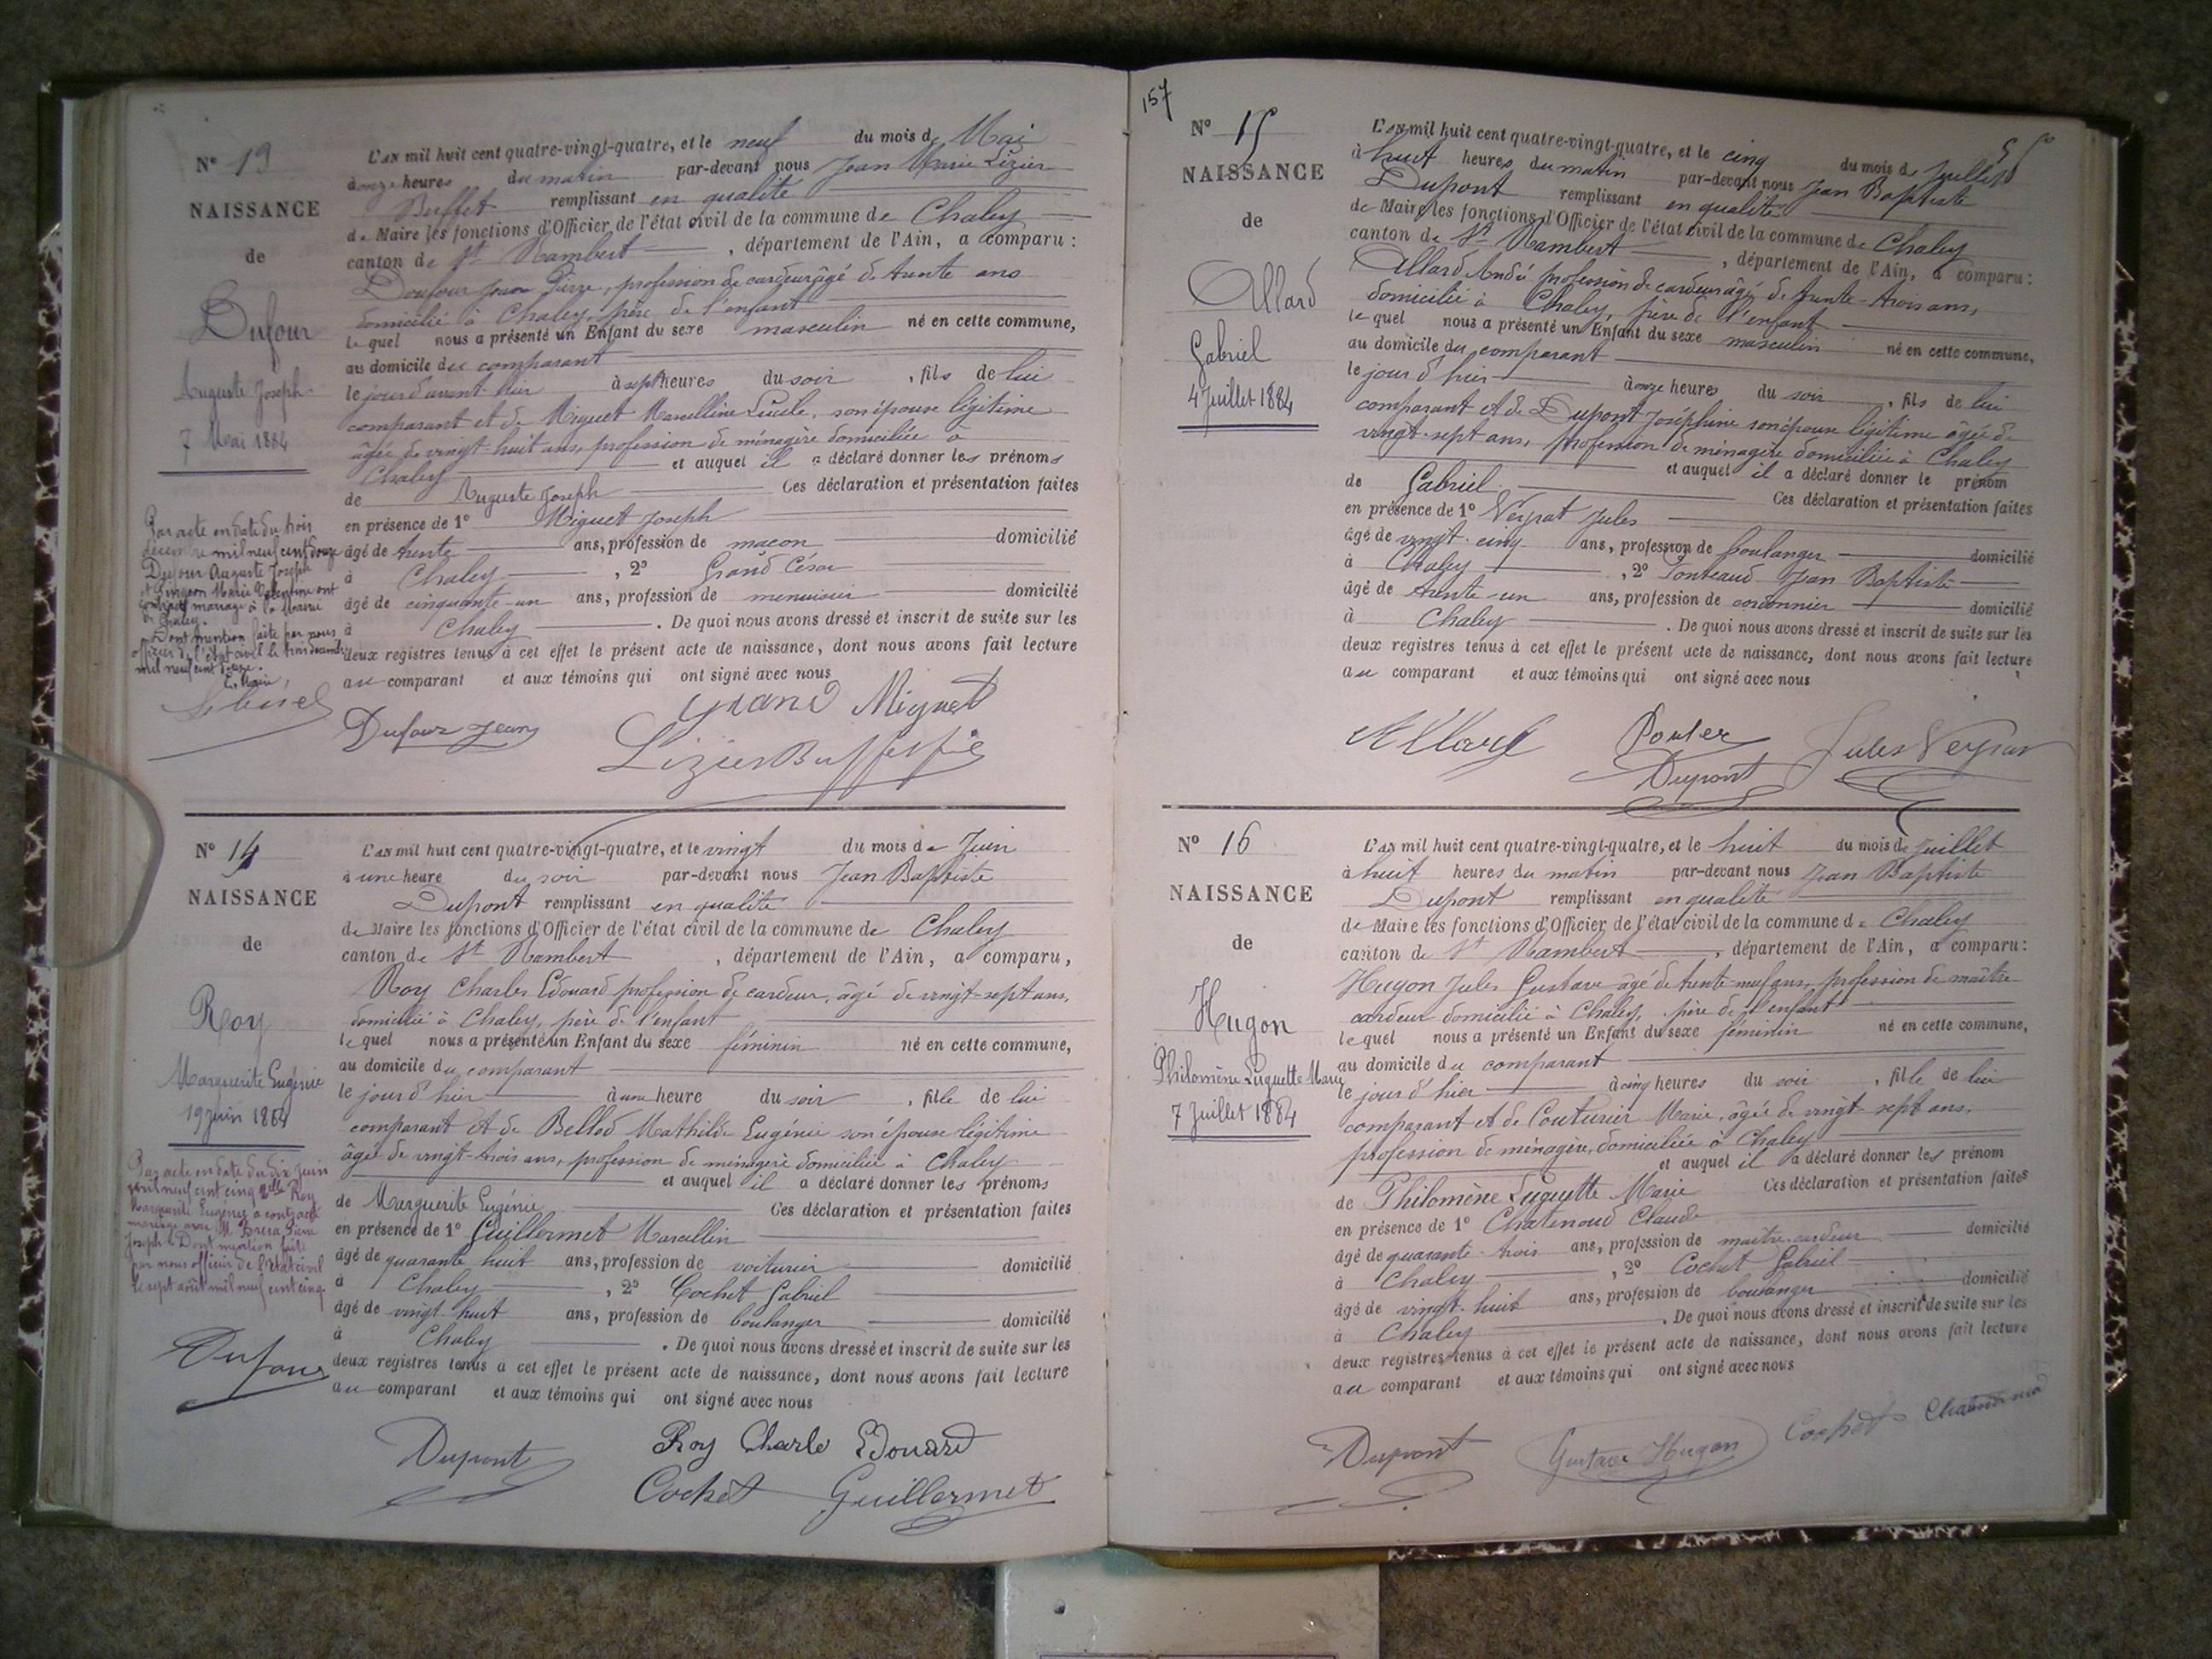 N° 13
NAISSANCE
de
Dufour
Auguste Joseph
7 Mai 1884
Par acte en date du trois
decembre mil neuf cent douze
Dufour Auguste Joseph
et Marie Valentine ont
contracté mariage à la Mairie
de Chaley.
Dont mention faite par nous
officier de l'état civil le trois decembre
mil neuf cent douze.
Le Maire,
L'an mil huit cent quatre-vingt-quatre, et le neuf du mois de Mai
à onze heures du matin par-devant nous Jean Marie Lizier
Buffet remplissant en qualité
de Maire les fonctions d'Officier de l'état civil de la commune de Chaley
canton de St Rambert, département de l'Ain, a comparu :
Doufour Jean Pierre, profession de cardeur âgé de trente ans
domicilié à Chaley, père de l'enfant
lequel nous a présenté un Enfant du sexe masculin né en cette commune,
au domicile du comparant
le jour d'avant-hier à sept heures du soir, fils de lui
comparant et de Miguet Marcelline Lucile, son épouse légitime
âgée de vingt-huit ans, profession de ménagère domiciliée à
Chaley et auquel il a déclaré donner les prénoms
de Auguste Joseph Ces déclaration et présentation faites
en présence de 1° Miguet Joseph
âgé de trente ans, profession de maçon domicilié
à Chaley, 2° Grand César
âgé de cinquante-un ans, profession de menuisier domicilié
à Chaley. De quoi nous avons dressé et inscrit de suite sur les
deux registres tenus à cet effet le présent acte de naissance, dont nous avons fait lecture
au comparant et aux témoins qui ont signé avec nous
Grand Miguet
Dufour Jean
Lizier Buffet
N° 14
NAISSANCE
de
Roy
Marguerite Eugénie
19 Juin 1884
Par acte en date du dix juin
mil neuf cent cinq Mlle Roy
Marguerite Eugénie a contracté
mariage avec M. Pierre
Joseph. Dont mention faite
par nous officier de l'état civil
le sept août mil neuf cent cinq.
Dufour
L'an mil huit cent quatre-vingt-quatre, et le vingt du mois de Juin
à une heure du soir par-devant nous Jean Baptiste
Dupont remplissant en qualité
de Maire les fonctions d'Officier de l'état civil de la commune de Chaley
canton de St Rambert, département de l'Ain, a comparu,
Roy Charles Edouard profession de cardeur, âgé de vingt-sept ans,
domicilié à Chaley, père de l'enfant
lequel nous a présenté un Enfant du sexe féminin né en cette commune,
au domicile du comparant
le jour d'hier à une heure du soir, fille de lui
comparant et de Bellod Mathilde Eugénie son épouse légitime
âgée de vingt-trois ans, profession de ménagère domiciliée à Chaley
et auquel il a déclaré donner les prénoms
de Marguerite Eugénie Ces déclaration et présentation faites
en présence de 1° Guillermet Marcellin
âgé de quarante huit ans, profession de voiturier domicilié
à Chaley, 2° Cochet Gabriel
âgé de vingt huit ans, profession de boulanger domicilié
à Chaley. De quoi nous avons dressé et inscrit de suite sur les
deux registres tenus à cet effet le présent acte de naissance, dont nous avons fait lecture
au comparant et aux témoins qui ont signé avec nous
Dupont Roy Charle Edouard
Cochet Guillermet
157
N° 15
NAISSANCE
de
Allard
Gabriel
4 Juillet 1884
L'an mil huit cent quatre-vingt-quatre, et le cinq du mois de Juillet
à huit heures du matin par-devant nous Jean Baptiste
Dupont remplissant en qualité
de Maire les fonctions d'Officier de l'état civil de la commune de Chaley
canton de St Rambert, département de l'Ain, a comparu :
Allard André profession de cardeur âgé de trente-trois ans,
domicilié à Chaley, père de l'enfant
lequel nous a présenté un Enfant du sexe masculin né en cette commune,
au domicile du comparant
le jour d'hier à onze heures du soir, fils de lui
comparant et de Dupont Joséphine son épouse légitime âgée de
vingt-sept ans, profession de ménagère domiciliée à Chaley
et auquel il a déclaré donner le prénom
de Gabriel. Ces déclaration et présentation faites
en présence de 1° Veyrat Jules
âgé de vingt-cinq ans, profession de boulanger domicilié
à Chaley, 2° Jean Baptiste
âgé de trente-un ans, profession de cordonnier domicilié
à Chaley. De quoi nous avons dressé et inscrit de suite sur les
deux registres tenus à cet effet le présent acte de naissance, dont nous avons fait lecture
au comparant et aux témoins qui ont signé avec nous
Allard
Dupont Jules Veyrat
N° 16
NAISSANCE
de
Hugon
Philomène Luguette Marie
7 Juillet 1884
L'an mil huit cent quatre-vingt-quatre, et le huit du mois de Juillet
à huit heures du matin par-devant nous Jean Baptiste
Dupont remplissant en qualité
de Maire les fonctions d'Officier de l'état civil de la commune de Chaley
canton de St Rambert, département de l'Ain, a comparu :
Hugon Jules Gustave âgé de trente-neuf ans, profession de maître
cardeur domicilié à Chaley, père de l'enfant
lequel nous a présenté un Enfant du sexe féminin né en cette commune,
au domicile du comparant
le jour d'hier à cinq heures du soir, fille de lui
comparant et de Couturier Marie, âgée de vingt-sept ans,
profession de ménagère, domiciliée à Chaley
et auquel il a déclaré donner les prénom
de Philomène Luguette Marie Ces déclaration et présentation faites
en présence de 1° Chatenoud Claude
âgé de quarante-trois ans, profession de maître-cardeur domicilié
à Chaley, 2° Cochet Gabriel
âgé de vingt-huit ans, profession de boulanger domicilié
à Chaley. De quoi nous avons dressé et inscrit de suite sur les
deux registres tenus à cet effet le présent acte de naissance, dont nous avons fait lecture
au comparant et aux témoins qui ont signé avec nous
Dupont Gustave Hugon Cochet